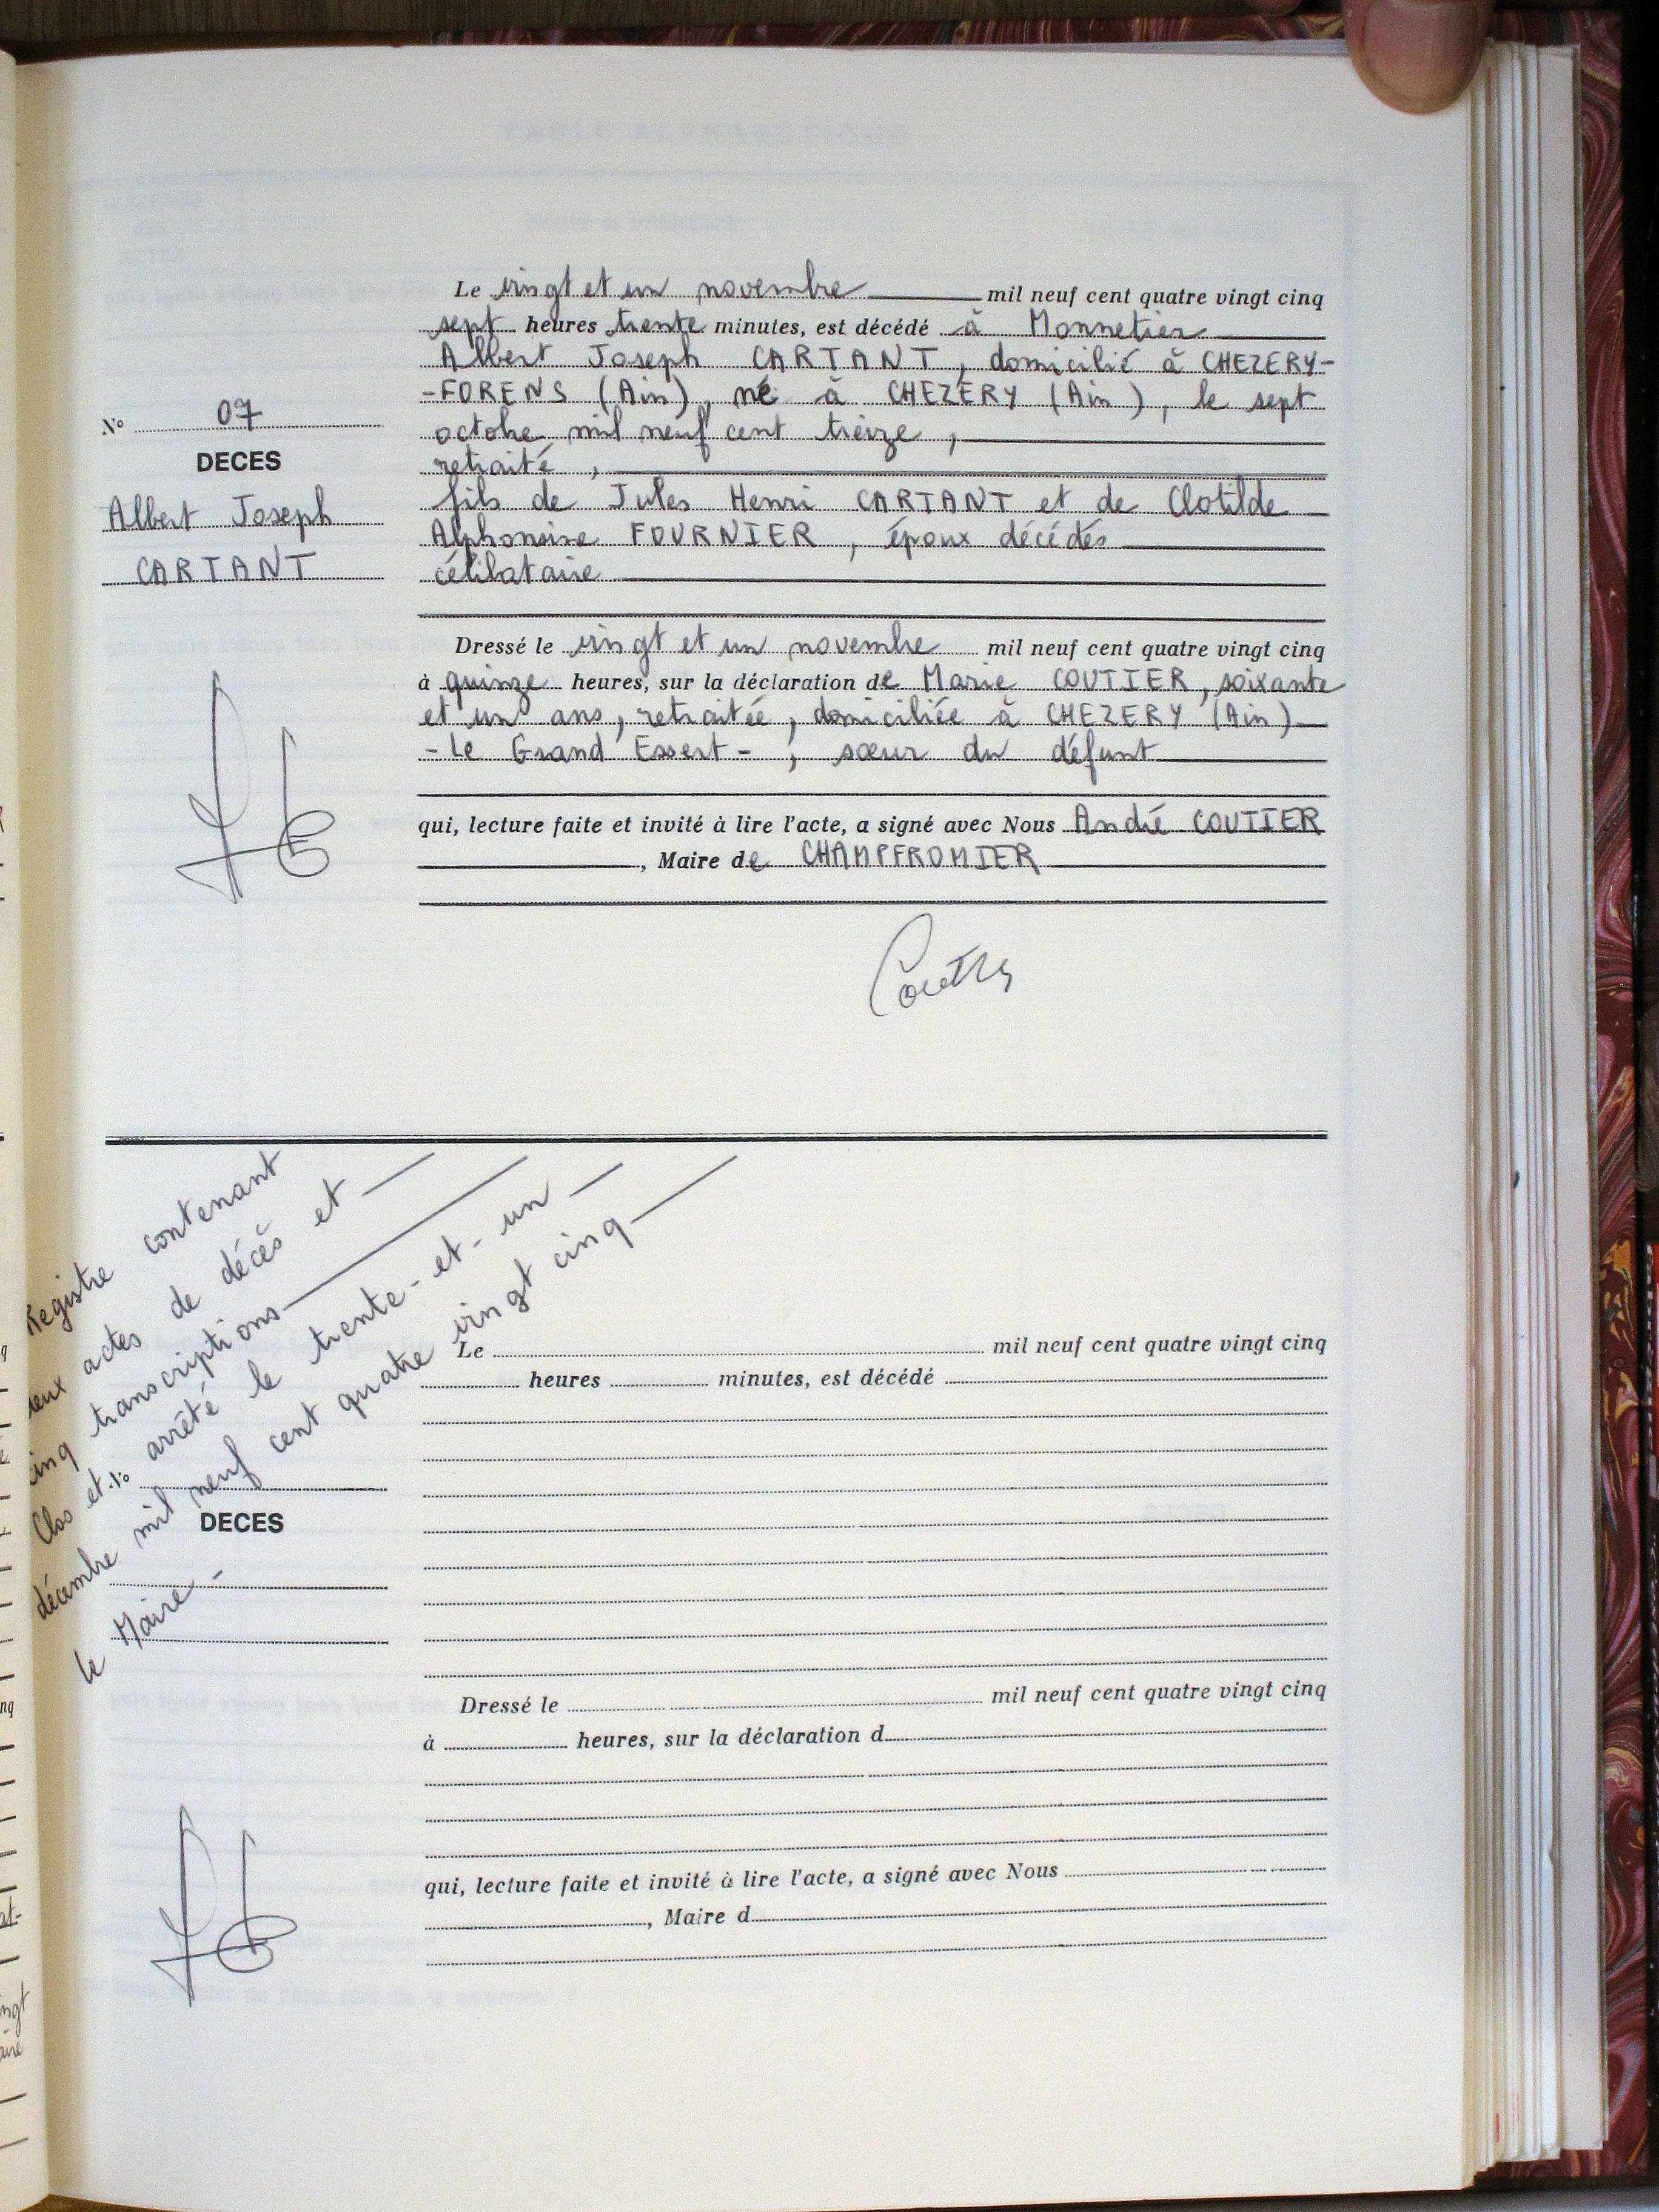 Le vingt et un novembre mil neuf cent quatre vingt cinq
sept heures trente minutes, est décédé à Monnetier
Albert Joseph CARTANT, domicilié à CHEZERY-
-FORENS (Ain), né à CHEZERY (Ain), le sept
octobre mil neuf cent treize,
retraité,
fils de Jules Henri CARTANT et de Clotilde
Alphonsine FOURNIER, époux décédés
célibataire
N° 07
DECES
Albert Joseph
CARTANT
Dressé le vingt et un novembre mil neuf cent quatre vingt cinq
à quinze heures, sur la déclaration de Marie COUTIER, soixante
et un ans, retraitée, domiciliée à CHEZERY (Ain)
- Le Grand Essert -, sœur du défunt
qui, lecture faite et invité à lire l'acte, a signé avec Nous André COUTIER
, Maire de CHAMPFROMIER
Registre contenant
actes de décès et
cinq transcriptions
Clos et arrêté le trente-et-un
décembre mil neuf cent quatre vingt cinq
le Maire -
Le mil neuf cent quatre vingt cinq
heures minutes, est décédé
N°
DECES
Dressé le mil neuf cent quatre vingt cinq
à heures, sur la déclaration d
qui, lecture faite et invité à lire l'acte, a signé avec Nous
, Maire d